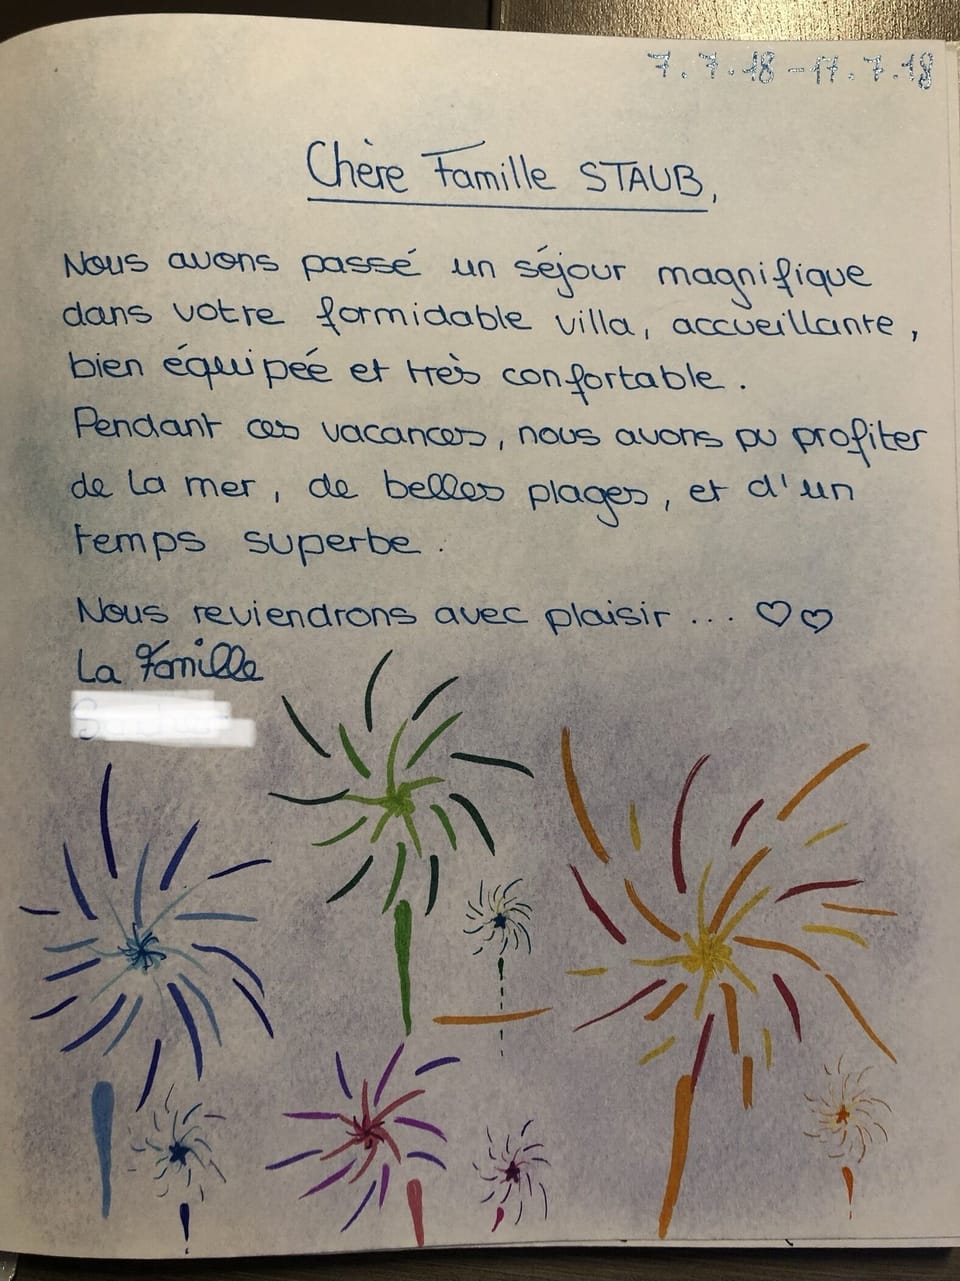 7.7.18-17.7.18
Chère Famille STAUB,
Nous avons passé un séjour magnifique
dans votre formidable villa, accueillante,
bien équipée et très confortable.
Pendant ces vacances, nous avons pu profiter
de la mer, de belles plages, et d'un
temps superbe.
Nous reviendrons avec plaisir ... ♡♡
La Famille